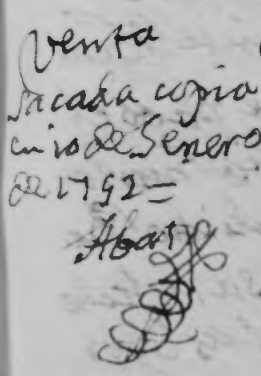 Venta
Sacada copia
en 10 de Henero
de 1792=